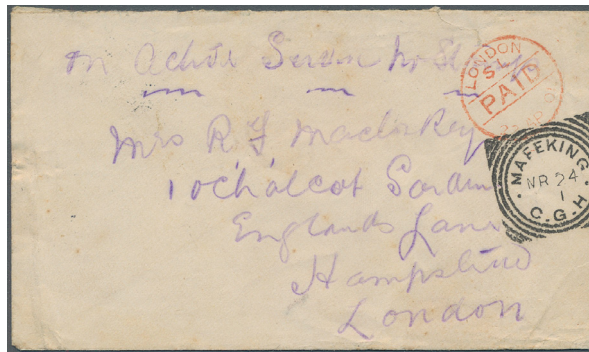 On Active Service No Stamps
LONDON
S.L
PAID
AP 01
MAFEKING
MR 24
1
C.G.H
Mrs R F Macloskey
1 Ochalcot Garden
Englands Lane
Hampstead
London